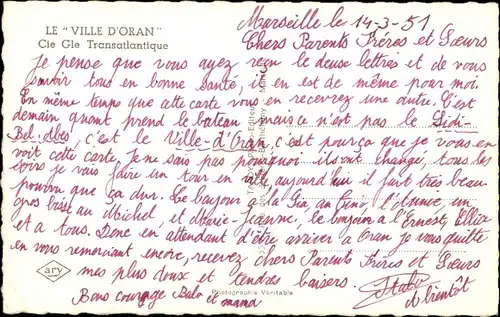 LE "VILLE D'ORAN"
Cie Gle Transatlantique
Marseille le 14-3-51
Chers Parents Frères et Sœurs
Je pense que vous ayez reçu le deuse lettres et de vous
savoir tous en bonne santé, ii en est de même pour moi
En même temps que cette carte vous en recevrez une autre. C'est
demain qu'ont prend le bateau mais ce n'est pas le Sidi-
Bel-Abes, c'est le Ville-d'Oran, c'est pourça que je vous en-
voit cette carte. Je ne sais pas pourquoi ils ont changer, tous les
soirs je vais faire un tour en ville, aujourd'hui il fait très beau
pourvu que ça dur. Le bonjour a la Zia an Gino, l'Annue, un
gros baisé au Michel et Marie-Jeanne, le bonjour a l'Ernest,
et a tous. Donc en attendant d'être arriver a Oran je vous quitte
en vous remerciant encore, recevez Chers Parents Frères et Sœurs
mes plus doux et tendres baisers. Italo
Bons courage Balo et mama
A bientôt
ary
Photographie Véritable